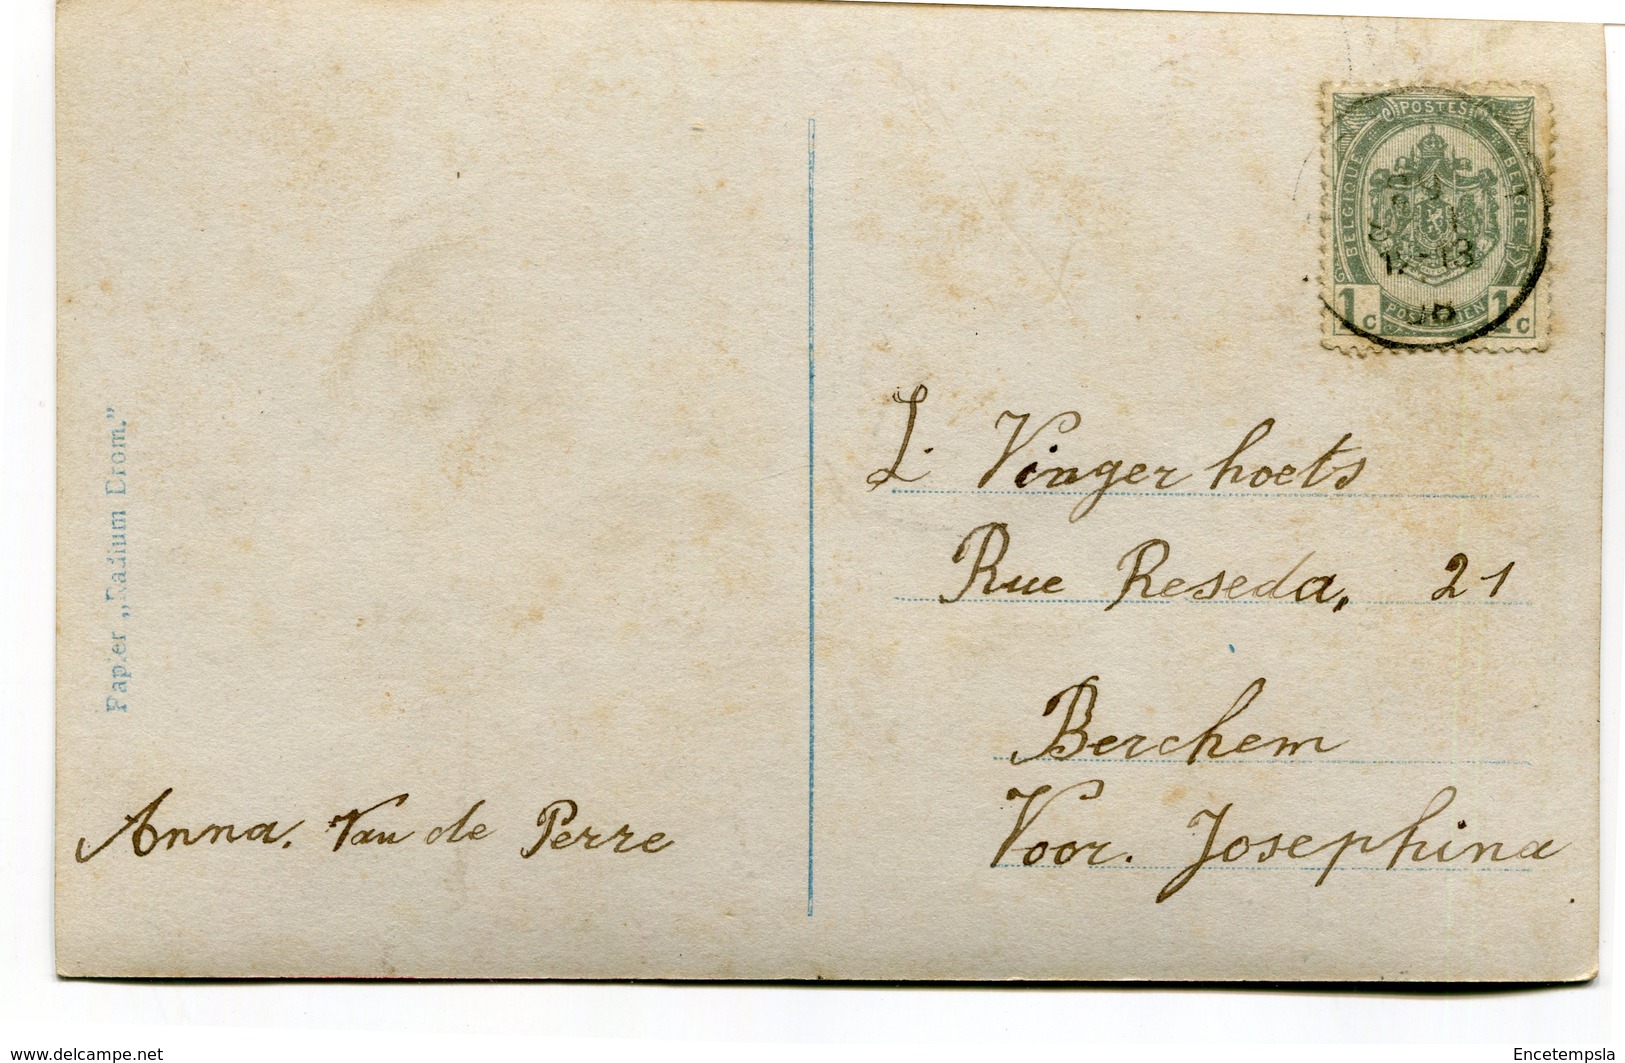 POSTES
BELGIQUE
BELGIE
1c
1c
12-13
L. Vingerhoets
Rue Reseda, 21
Berchem
Voor. Josephina
Anna. Van de Perre
Papier „Radium Brom."
www.delcampe.net
Encetempsla